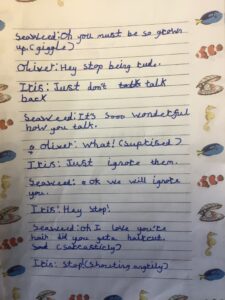 Seaweed: Oh you must be so grown
up. (giggle)
Oliver: Hey stop being rude.
Iris: Just don't talk talk
back
Seaweed: It's Sooo wonderful
how you talk.
Oliver: What! (suprised)
Iris: Just ignore them.
Seaweed: ok we will ignore
you.
Iris: Hey stop!
Seaweed: oh I love you're
hair did you get a haircut.
(sarcasticly)
Iris: Stop! (shouting angtily)